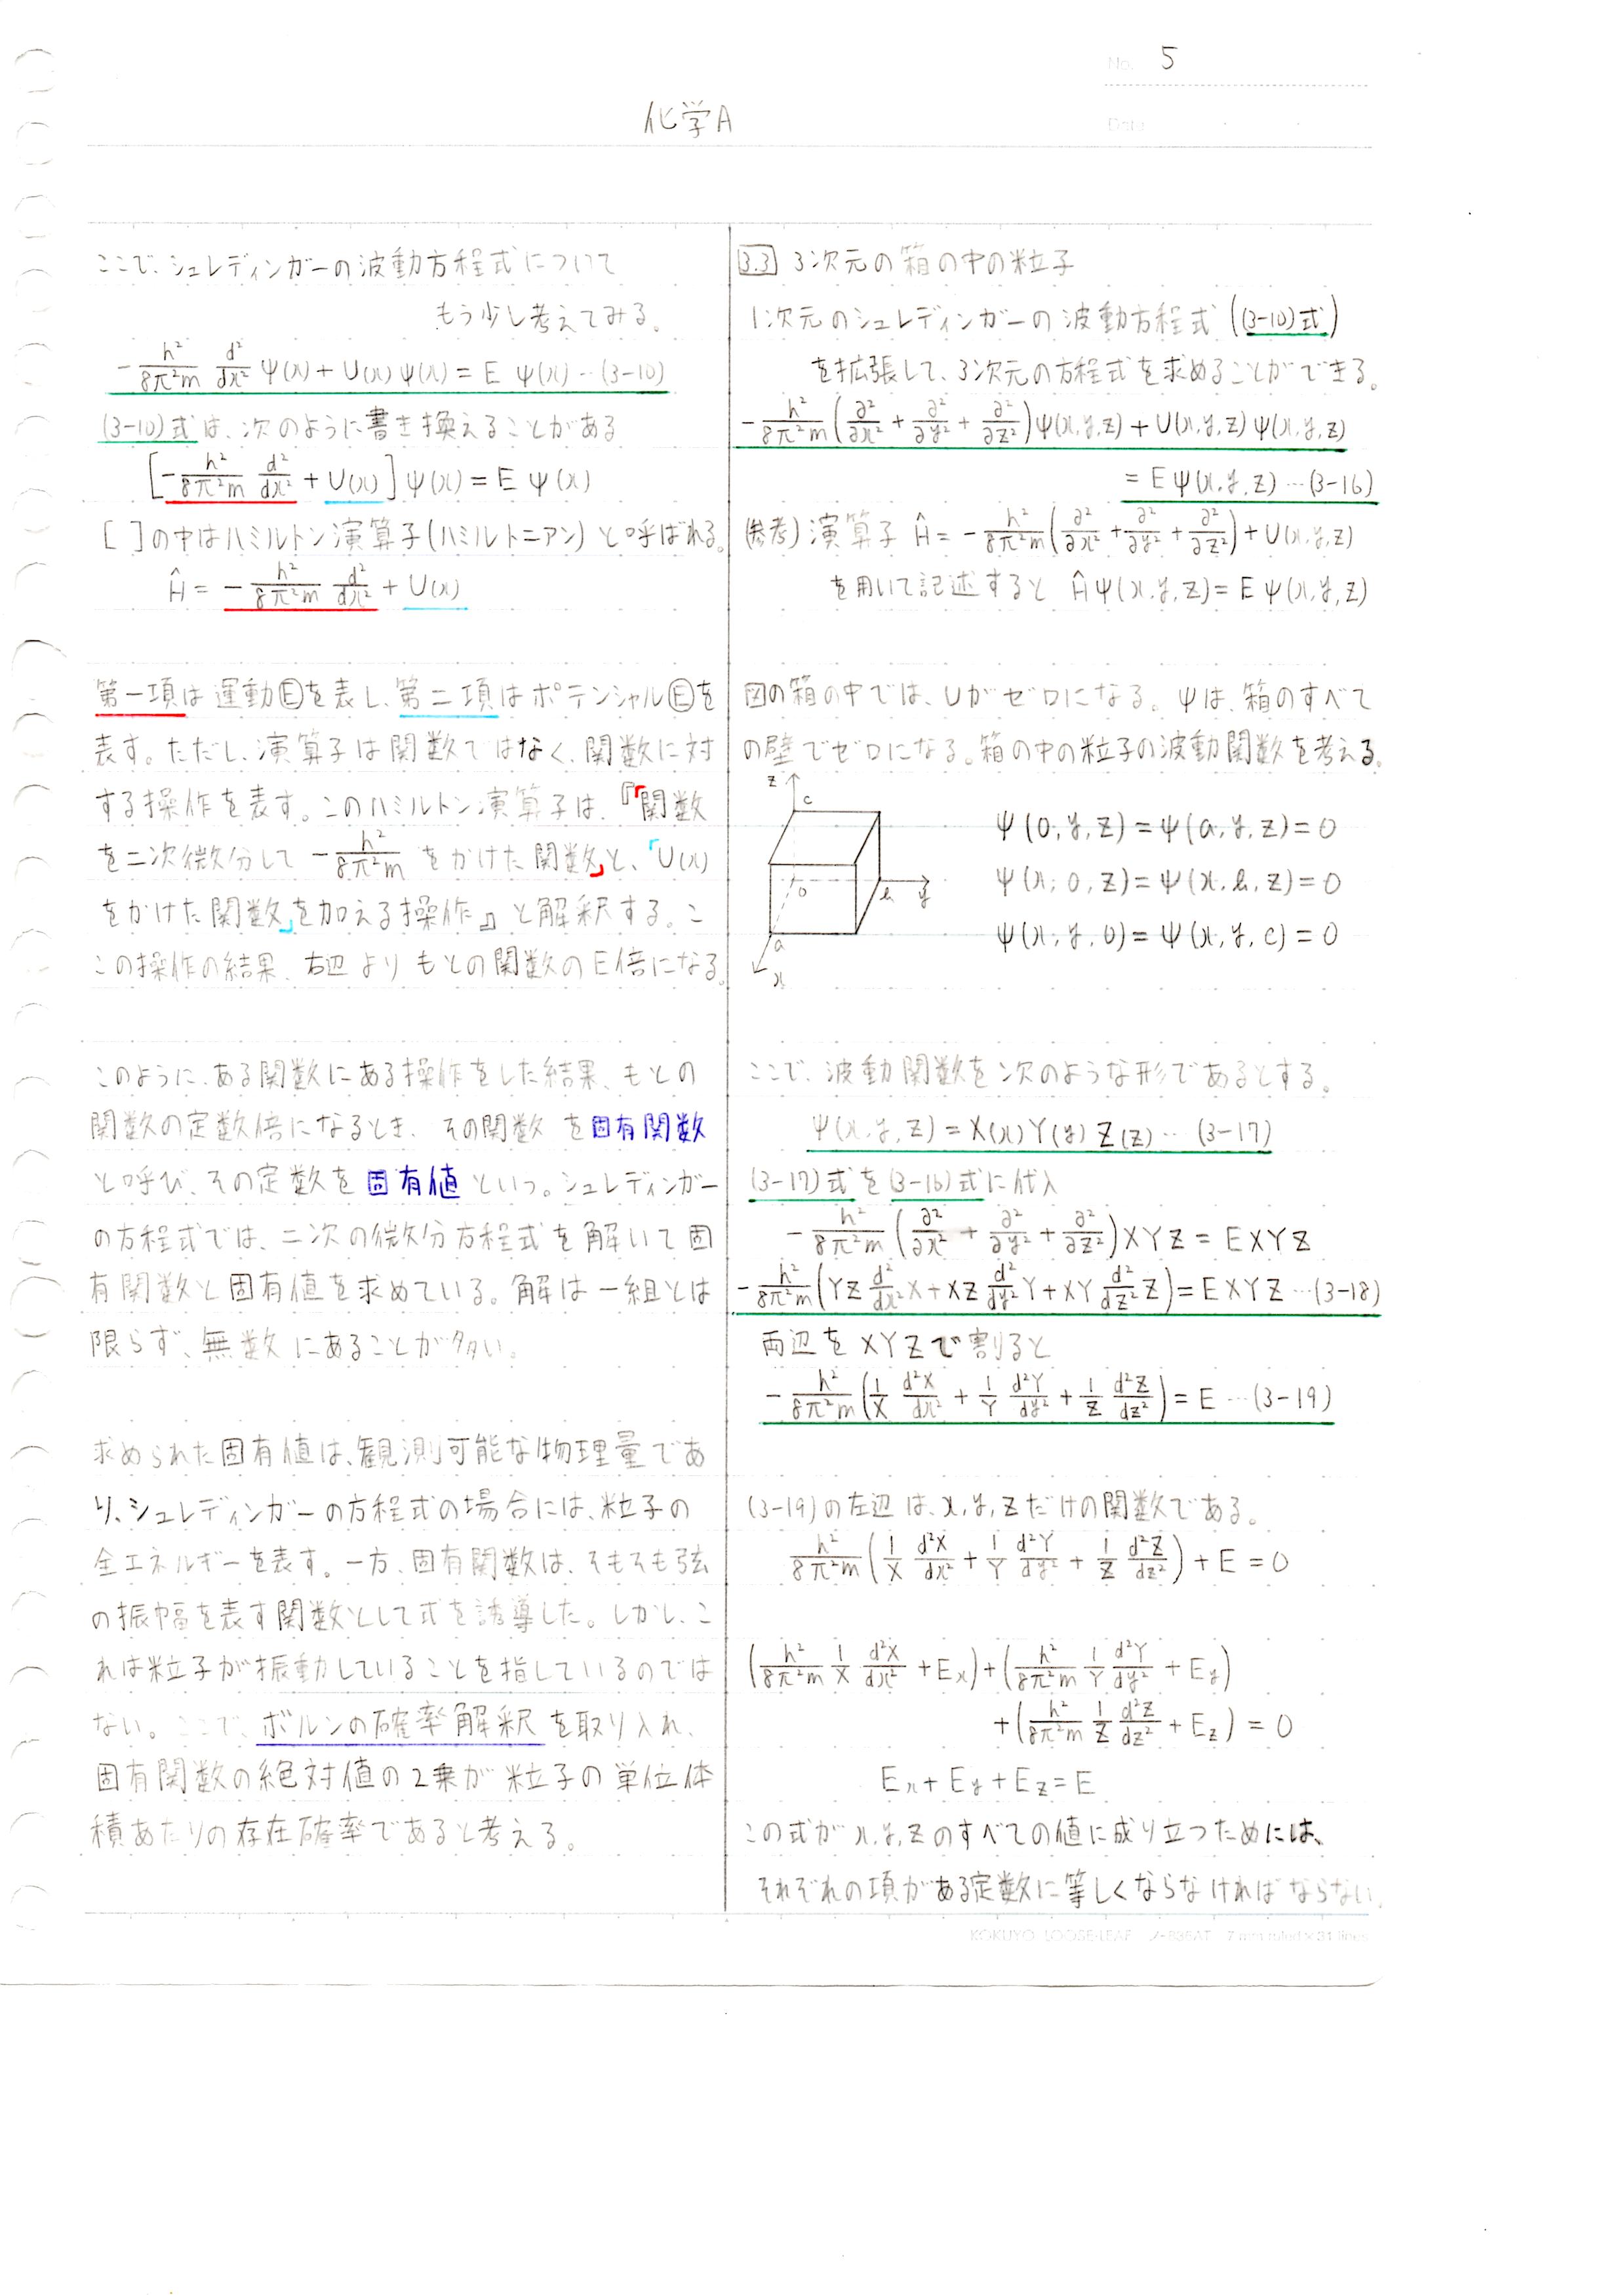 No. 5
化学A
Date
ここで、シュレディンガーの波動方程式について
もう少し考えてみる。
-h²/8π²m d²/dx² Ψ(x) + U(x)Ψ(x) = E Ψ(x) … (3-10)
(3-10)式は、次のように書き換えることがある
[-h²/8π²m d²/dx² + U(x)] Ψ(x) = E Ψ(x)
[ ]の中はハミルトン演算子(ハミルトニアン)と呼ばれる。
Ĥ = -h²/8π²m d²/dx² + U(x)
第一項は運動Ⓔを表し、第二項はポテンシャルⒺを
表す。ただし、演算子は関数ではなく、関数に対
する操作を表す。このハミルトン演算子は、『「関数
を二次微分して -h²/8π²m をかけた関数」と、「U(x)
をかけた関数」を加える操作』と解釈する。こ
この操作の結果、右辺よりもとの関数のE倍になる。
このように、ある関数にある操作をした結果、もとの
関数の定数倍になるとき、その関数を固有関数
と呼び、その定数を固有値という。シュレディンガー
の方程式では、二次の微分方程式を解いて固
有関数と固有値を求めている。解は一組とは
限らず、無数にあることが多い。
求められた固有値は、観測可能な物理量であ
り、シュレディンガーの方程式の場合には、粒子の
全エネルギーを表す。一方、固有関数は、そもそも弦
の振幅を表す関数として式を誘導した。しかし、こ
れは粒子が振動していることを指しているのでは
ない。ここで、ボルンの確率解釈を取り入れ、
固有関数の絶対値の2乗が粒子の単位体
積あたりの存在確率であると考える。
3.3 3次元の箱の中の粒子
1次元のシュレディンガーの波動方程式((3-10)式)
を拡張して、3次元の方程式を求めることができる。
-h²/8π²m (∂²/∂x² + ∂²/∂y² + ∂²/∂z²) Ψ(x,y,z) + U(x,y,z) Ψ(x,y,z)
= E Ψ(x,y,z) … (3-16)
(参考) 演算子 Ĥ = -h²/8π²m (∂²/∂x² + ∂²/∂y² + ∂²/∂z²) + U(x,y,z)
を用いて記述すると ĤΨ(x,y,z) = E Ψ(x,y,z)
図の箱の中では、Uがゼロになる。Ψは、箱のすべて
の壁でゼロになる。箱の中の粒子の波動関数を考える。
z
c
0
b
y
a
x
Ψ(0,y,z) = Ψ(a,y,z) = 0
Ψ(x,0,z) = Ψ(x,b,z) = 0
Ψ(x,y,0) = Ψ(x,y,c) = 0
ここで、波動関数を次のような形であるとする。
Ψ(x,y,z) = X(x)Y(y)Z(z) … (3-17)
(3-17)式を(3-16)式に代入
-h²/8π²m (∂²/∂x² + ∂²/∂y² + ∂²/∂z²) XYZ = EXYZ
-h²/8π²m (YZ d²/dx² X + XZ d²/dy² Y + XY d²/dz² Z) = EXYZ … (3-18)
両辺をXYZで割ると
-h²/8π²m (1/X d²X/dx² + 1/Y d²Y/dy² + 1/Z d²Z/dz²) = E … (3-19)
(3-19)の左辺は、x,y,zだけの関数である。
h²/8π²m (1/X d²X/dx² + 1/Y d²Y/dy² + 1/Z d²Z/dz²) + E = 0
(h²/8π²m 1/X d²X/dx² + Ex) + (h²/8π²m 1/Y d²Y/dy² + Ey)
+ (h²/8π²m 1/Z d²Z/dz² + Ez) = 0
Ex + Ey + Ez = E
この式がx,y,zのすべての値に成り立つためには、
それぞれの項がある定数に等しくならなければならない。
KOKUYO LOOSE-LEAF ノ-836AT 7 mm ruled × 31 lines